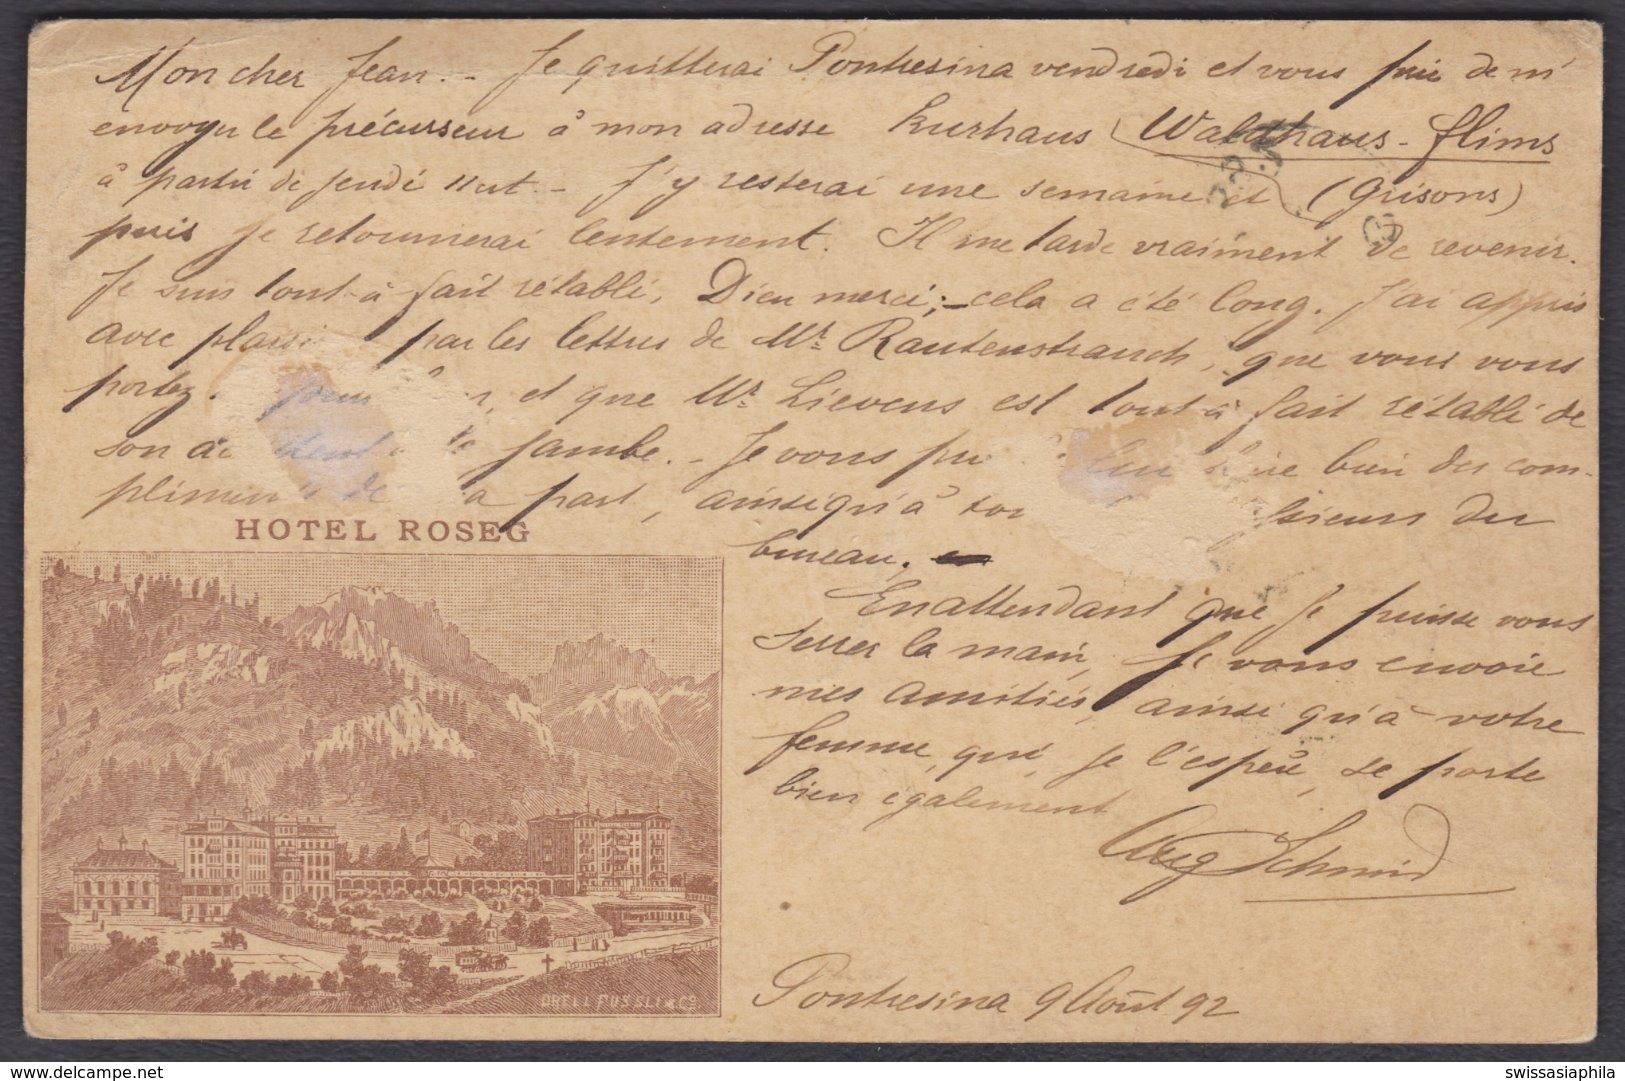 Mon cher Jean. - Je quitterai Pontresina vendredi et vous prie de m'
envoyer le précurseur à mon adresse Kurhaus Waldhaus-Flims
à partir de jeudi 11 ct. - J'y resterai une semaine et (Grisons)
puis je retournerai lentement. Il me tarde vraiment de revenir.
Je suis tout-à-fait rétabli, Dieu merci; - cela a été long. J'ai appris
avec par les lettres de Mr. Rautenstrauch, que vous vous
portez et que Mr. Lievens est tout à fait rétabli de
son jambe. - Je vous bien des com-
part, ainsi qu'à du
bureau.
En attendant que je puisse vous
serrer la main, je vous envoie
mes amitiés, ainsi qu'à votre
femme, qui, je l'espère, se porte
bien également
Aug Schmid
HOTEL ROSEG
ORELL FUSSLI & Co
Pontresina 9 Août 92
delcampe.net
swissasiaphila